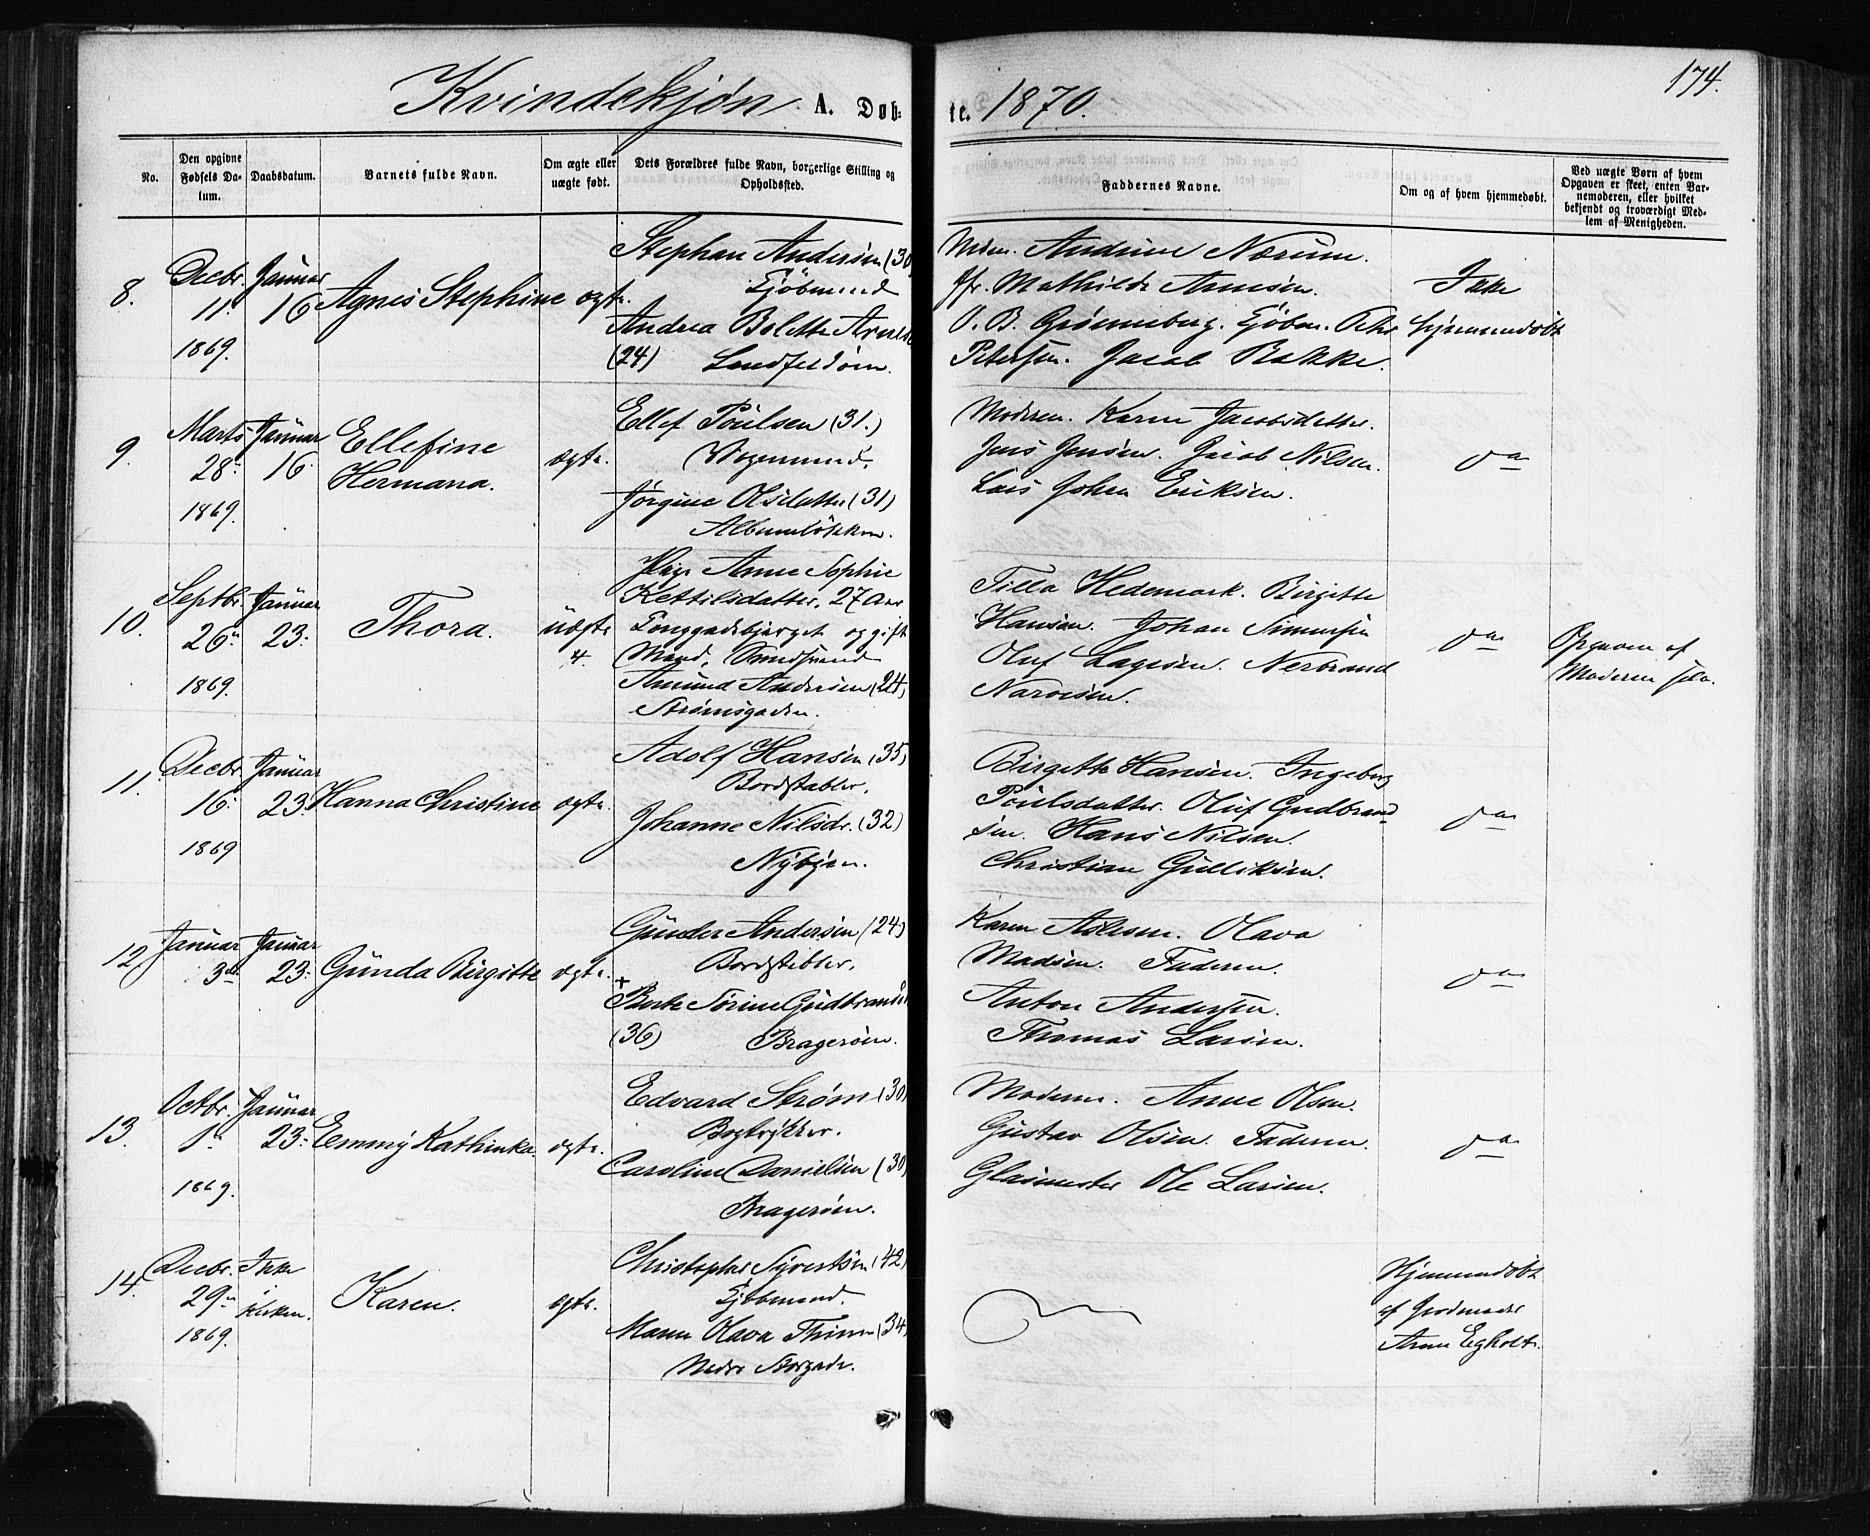 Kvindekjøn A. Døb-
te. 1870.
174.
No.
Den opgivne Fødsels Da-
tum.
Daabsdatum.
Barnets fulde Navn.
Om ægte eller
uægte født.
Dets Forældres fulde Navn, borgerlige Stilling og
Opholdssted.
Faddernes Navne.
Om og af hvem hjemmedøbt.
Ved uægte Børn af hvem
Opgaven er skeet, enten Bar-
nemoderen, eller hvilket
bekjendt og troværdigt Med-
lem af Menigheden.
8.
Decbr.
11.
1869.
Januar
16
Agnes Stephine
ægte.
Stephan Andersen (30)
Sjøbmand
Andrea Bolette
(24)
Andrine Nærum.
Jfr. Mathilde Arnesen.
O. B. Grønneberg. Sjøbm. Peter
Petersen. Jacob Bakke.
Ikke
hjemmedøbt
9.
Marts
28.
1869.
Januar
16.
Ellefine
Hermana.
ægte.
Ellef Poulsen (31.)
Vognmand.
Jørgine Olsdatter (31)
Albumløkken.
Moderen. Karen Jacobsdatter.
Jens Jensen. Jacob Nilsen.
Lars Johan Eriksen.
do
10.
Septbr.
26
1869.
Januar
23.
Thora.
uægte
4.
Pige Anne Sophie
Kettilsdatter, 27 Aar
Tonggadebjerget og gift
Mand,
Amund Andersen (24)
Strømsgaden.
Tilla Hedemark. Birgitte
Hansen. Johan Simensen
Oluf Lagesen. Nerbrand
Narvesen.
do
Opgaven af
Moderen selv.
11.
Decbr.
16.
1869
Januar
23.
Hanna Christine
ægte.
Adolf Hansen (35)
Bordstabler.
Johanne Nilsdr. (32)
Nybyen.
Birgitte Hansen. Ingeborg
Poulsdatter. Oluf Gudbrand-
sen. Hans Nilsen.
Christian Gulliksen.
do
12.
Januar
3die
Januar
23.
Gunda Birgitte
ægte.
Gunder Andersen (24)
Bordstabler.
+
Berte Sørine Gudbrandsen
(36) Bragerøen.
Karen Aslesen. Olava
Madsen. Faderen.
Anton Andersen.
Thomas Larsen.
do
13.
Octbr.
1
1869.
Januar
23.
Emmy Kathinka.
ægte.
Edvard Strøm (30)
Bogtrykker.
Caroline Danielsen (30)
Bragerøen.
Moderen. Anne Olsen.
Gustav Olsen. Faderen
Glasmester Ole Larsen.
do
14.
Decbr.
29
1869.
Ikke
i
Kirken.
Karen.
ægte.
Christopher Syvertsen (42)
Sjøbmand.
Maren Olava Thime (34)
Nedre Storgade.
Hjemmedøbt
af Jordmoder
Anne Egholt.